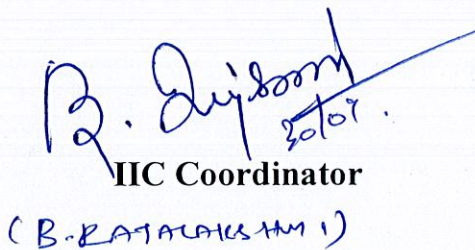 B.
30/07.
IIC Coordinator
(B. RAJALAKSHMI)